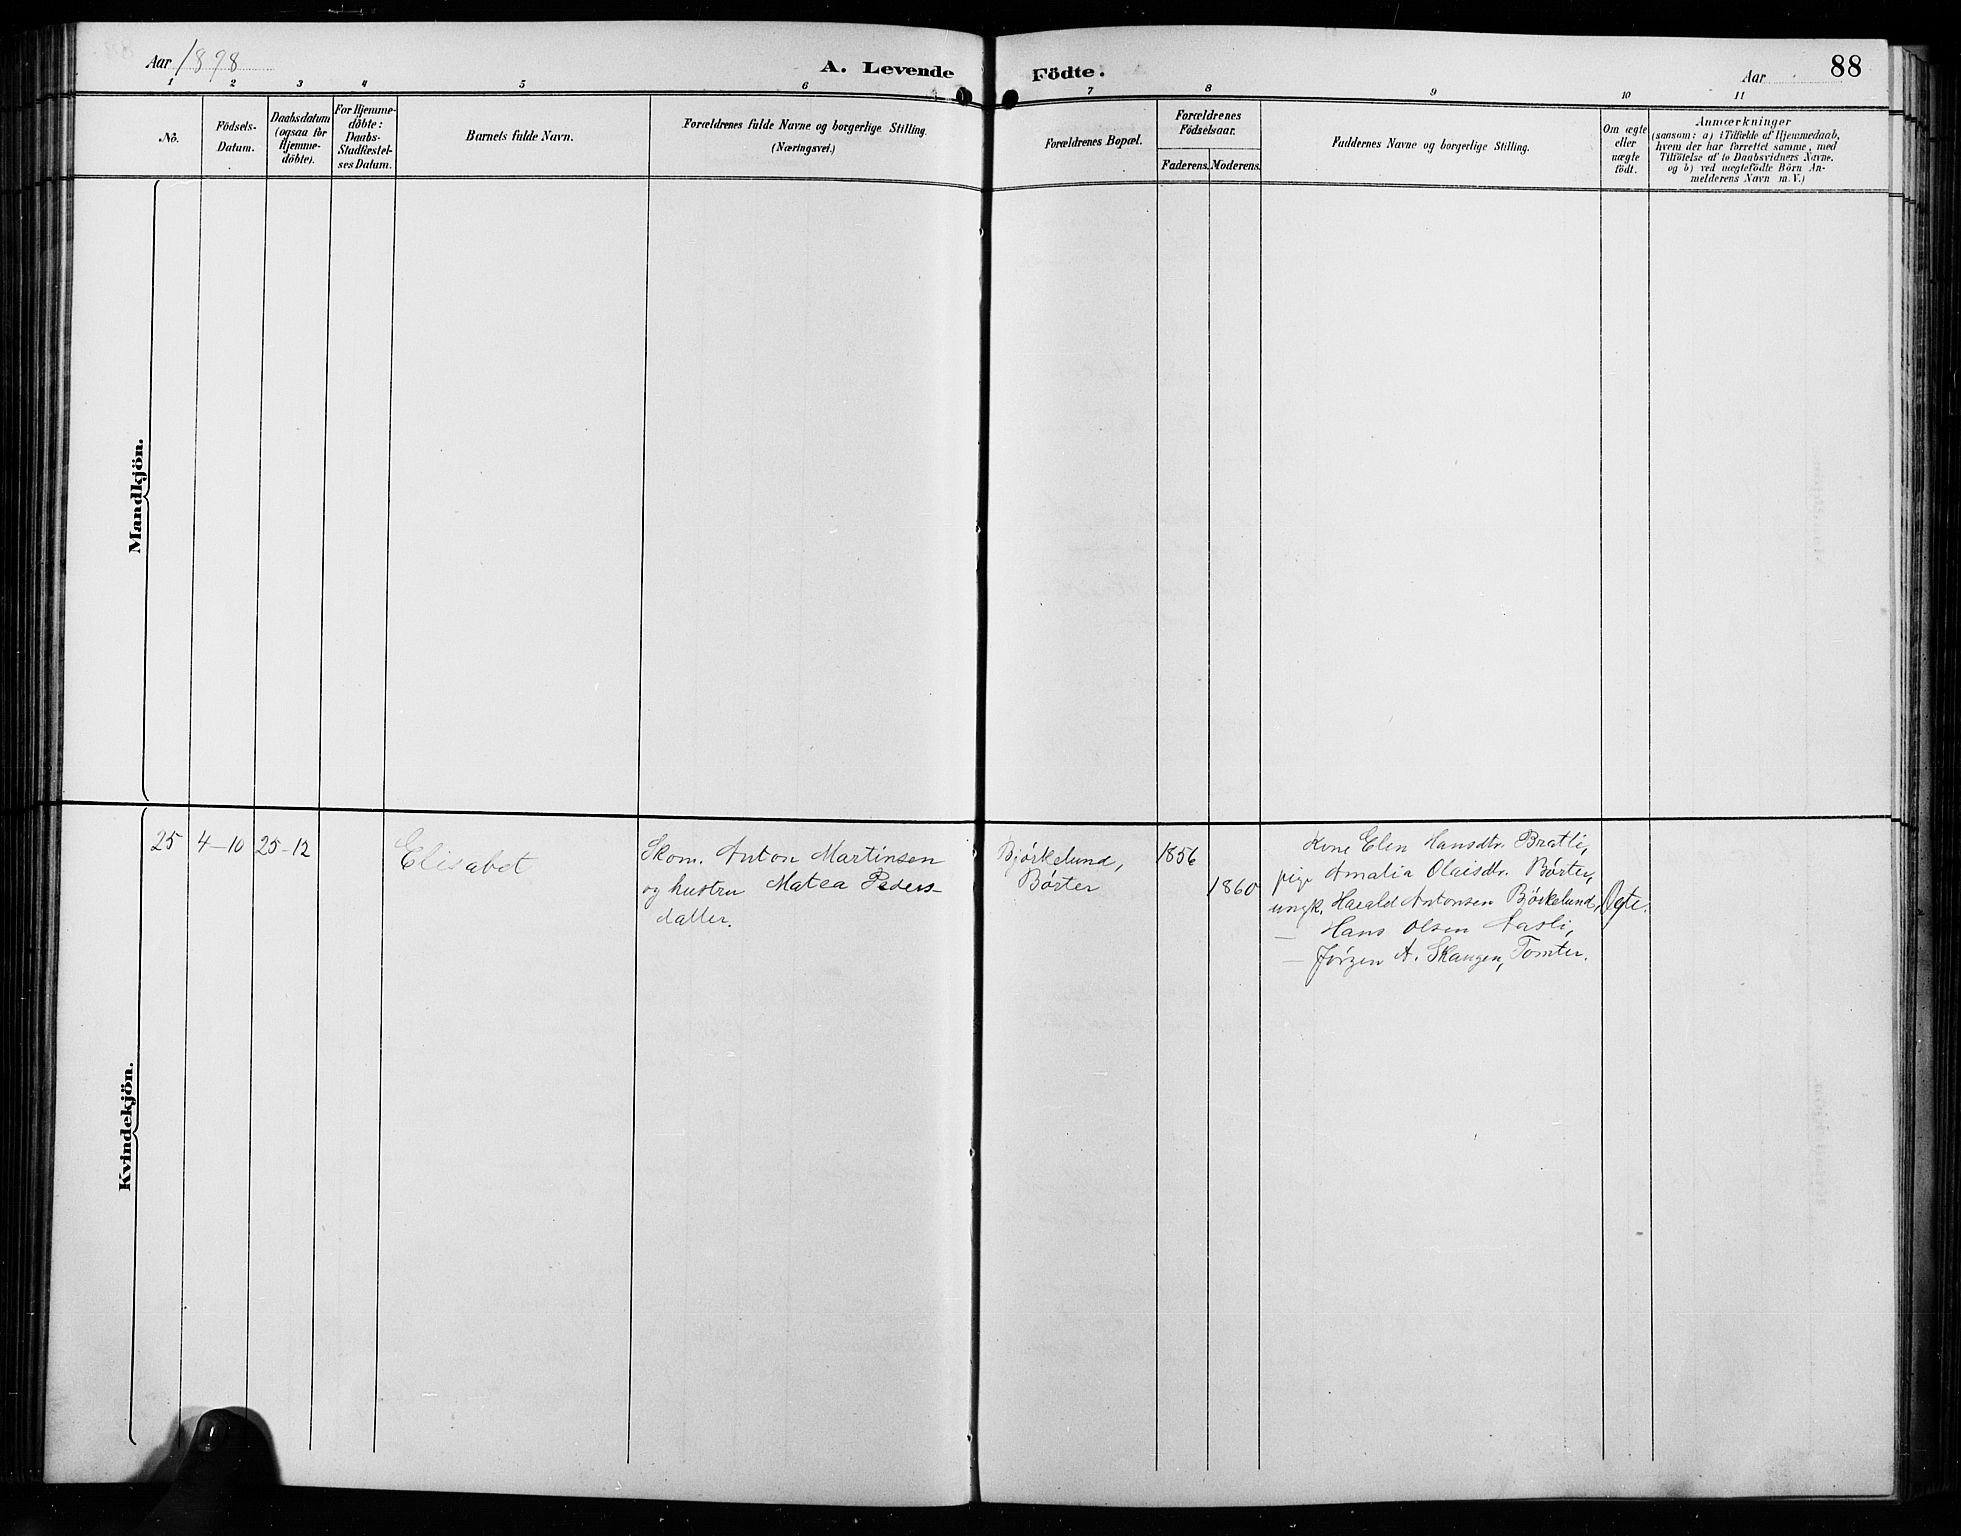 Aar 1898
A. Levende Födte.
Aar
88
1 2 3 4 5 6 7 8 9 10 11
No.
Födsels-
Datum.
Daabsdatum
(ogsaa for
Hjemme-
döbte).
For Hjemme-
döbte:
Daabs-
Stadfæstel-
ses Datum.
Barnets fulde Navn.
Forældrenes fulde Navne og borgerlige Stilling.
(Næringsvei.)
Forældrenes Bopæl.
Forældrenes
Födselsaar.
Faderens.
Moderens.
Faddernes Navne og borgerlige Stilling.
Om ægte
eller
uægte
födt.
Anmærkninger
(saasom: a) i Tilfælde af Hjemmedaab,
hvem der har forrettet samme, med
Tilföielse af to Daabsvidners Navne.
og b) ved uægtefödte Börn An-
melderens Navn m. V.)
Mandkjön.
Kvindekjön.
25
4-10
25-12
Elisabet
Skom. Anton Martinsen
og hustru Matea Peders-
datter.
Bjørkelund,
Børter
1856
1860
Kone Elen Hansdtr. Bratli,
pige Amalia Olaisdtr. Børter,
ungk. Harald Antonsen Bjørkelund,
— Hans Olsen Aasli,
— Jørgen A. Skaugen, Tomter.
Ægte.